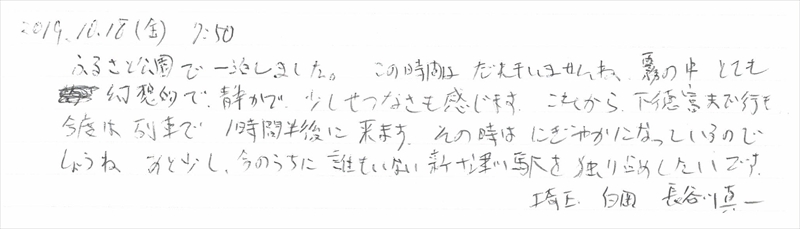 2019.10.18(金) 7:50
ふるさと公園で一泊しました。 この時間は だれもいませんね、霧の中 とても
幻想的で、静かで、少しせつなさも感じます。これから、下徳富まで行き
今度は 列車で 1時間半後に 来ます。その時は にぎやかになっているので
しょうね あと少し、今のうちに 誰もいない 新十津川駅を 独り占めしたいです。
埼玉 白岡 長谷川真一